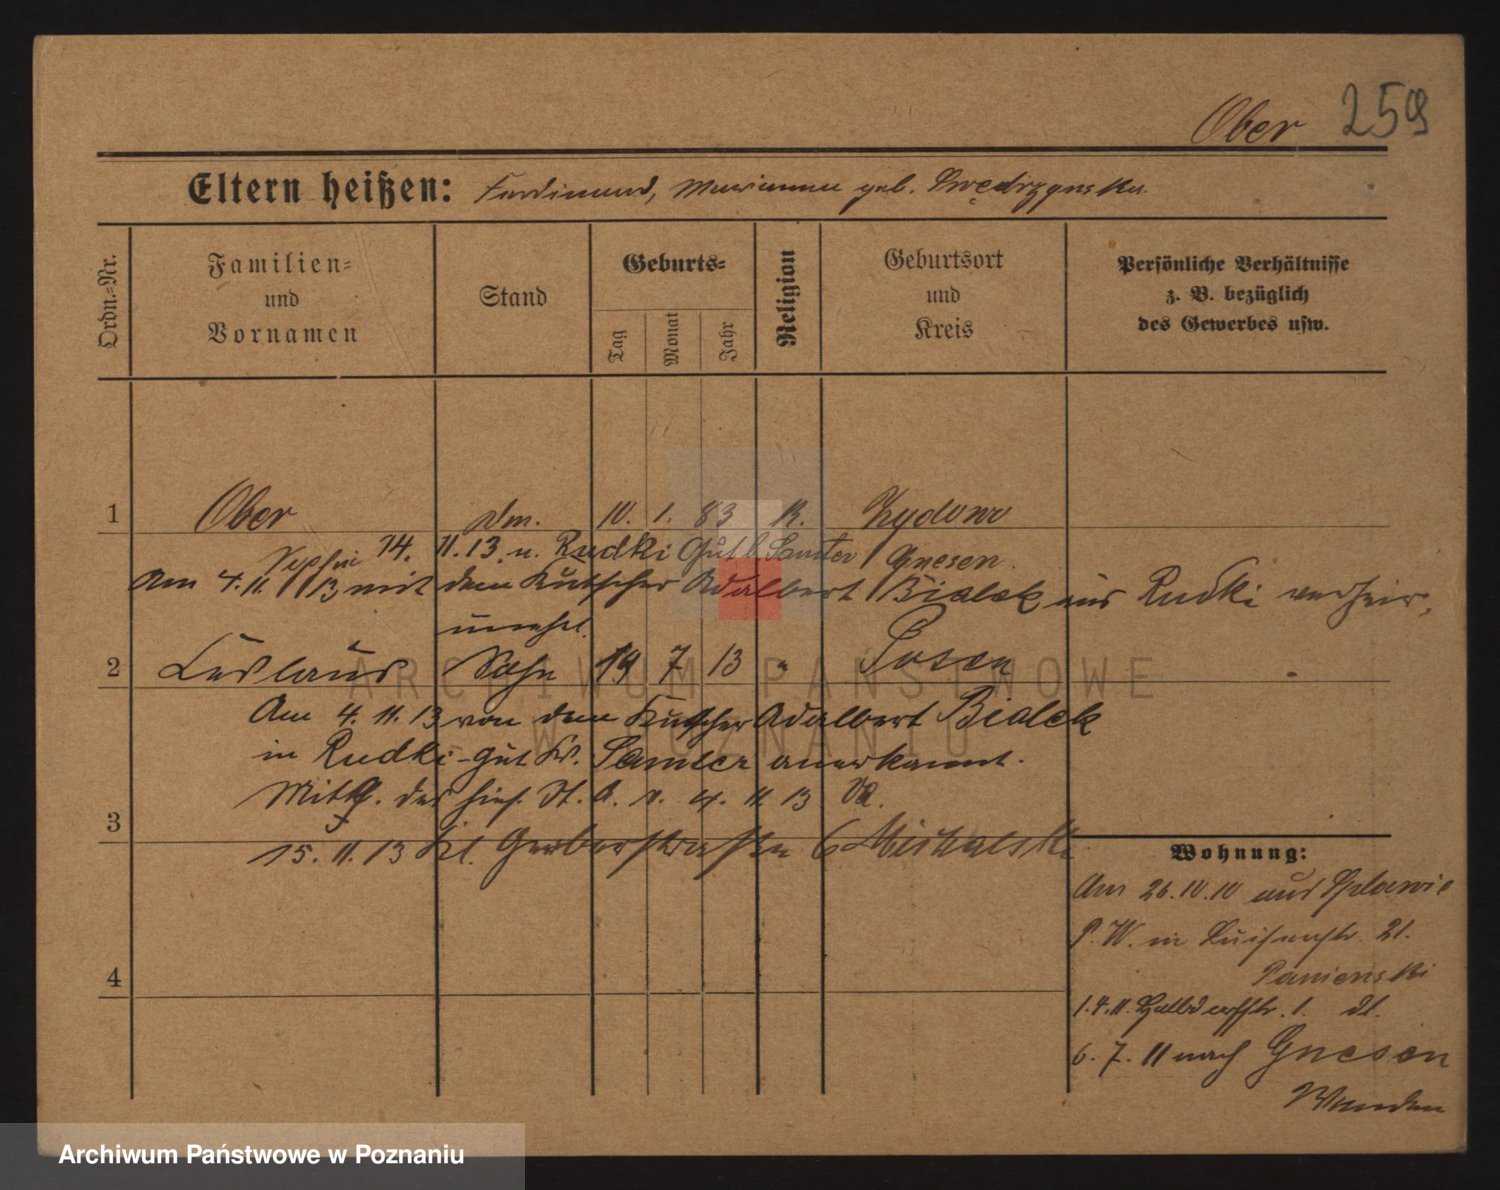 Ober 259
Eltern heißen: Ferdinand, Marianna geb. Swędrzynska
Ordn.-Nr.
Familien-
und
Vornamen
Stand
Geburts-
Tag
Monat
Jahr
Religion
Geburtsort
und
Kreis
Persönliche Verhältnisse
z. B. bezüglich
des Gewerbes usw.
1 Ober 10. 1. 83 K. Zydowo
14. 11.13 n. Rudki Gut b Samter Gnesen.
Am 4. 11. 13 mit dem Kutscher Adalbert Bialek aus Rudki verheir.
unehel.
2 Ladislaus Sohn 19 7 13 " Posen
Am 4. 11. 13 von dem Kutscher Adalbert Bialek
in Rudki-gut Kr. Samter anerkannt.
Mittlg. des hies. St. A. v. 4. 11 13
3
15. 11. 13 Kl. Gerberstraße 6 Michalska
Wohnung:
Am 26.10.10 aus Splawie
P. W. in Luisenstr. 21.
Panienski
1.4.11. Halbdorfstr. 1. dt.
4
6. 7. 11 nach Gnesen
ARCHIWUM PAŃSTWOWE
W POZNANIU
Archiwum Państwowe w Poznaniu